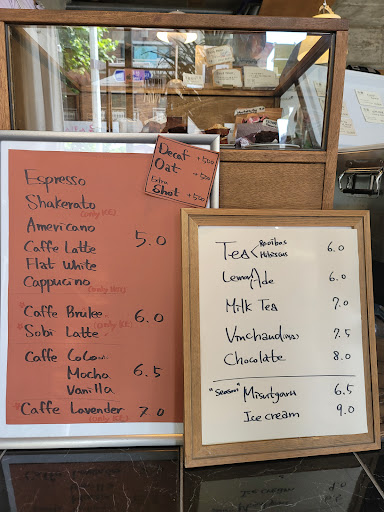 Espresso
Shakerato (only ICE)
Americano
Caffe Latte 5.0
Flat White
Cappucino (only HOT)
"Caffe Brulee (only ICE) 6.0
"Sobi Latte"
Caffe Cocoa
Mocha 6.5
Vanilla
"Caffe Lavender 7.0
(only ICE)
Decaf +500
Oat +500
Extra
Shot +500
Tea Rooibos 6.0
Hibiscus
Lemon Ade 6.0
Milk Tea 7.0
Vinchaud 7.5
Chocolate 8.0
"Season" Misutgaru 6.5
Ice cream 9.0